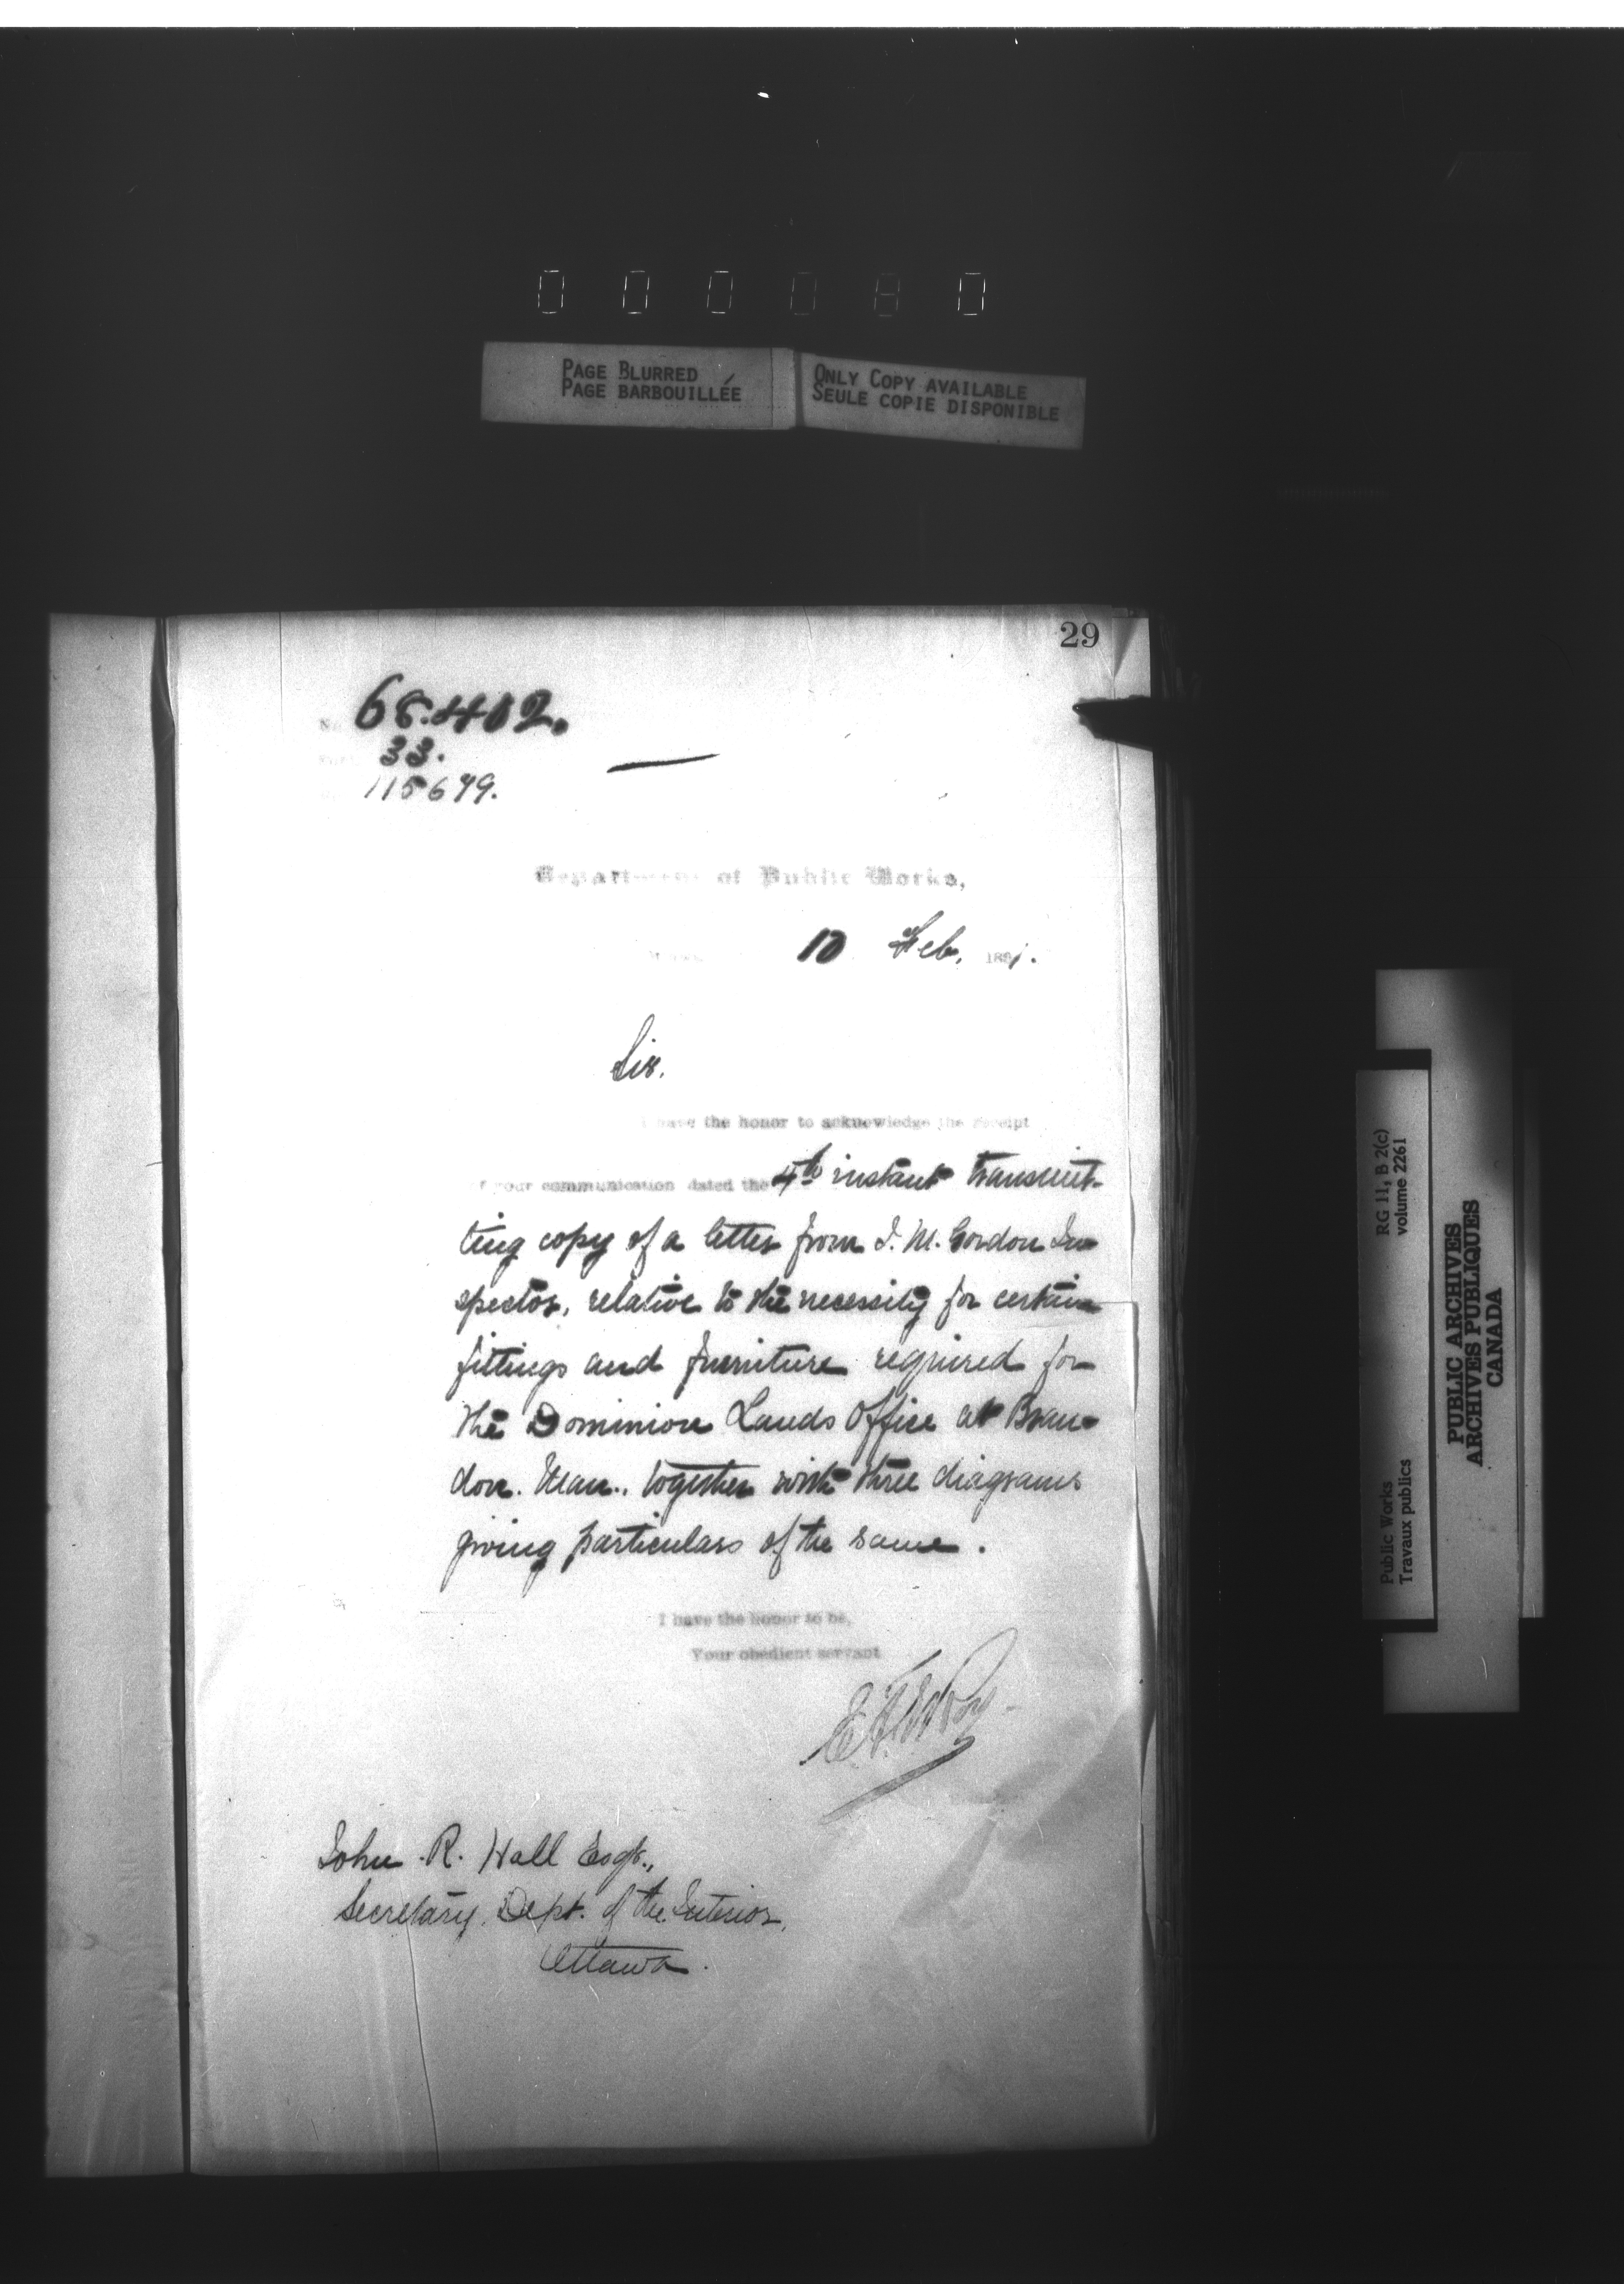 0 0 0 0 8 0
PAGE BLURRED
PAGE BARBOUILLÉE
ONLY COPY AVAILABLE
SEULE COPIE DISPONIBLE
29
33.
115679.
Department of Public Works,
10 Feb, 1891.
Sir.
I have the honor to acknowledge the receipt
of your communication dated the 4th instant transmit-
ting copy of a letter from J. M. Gordon In-
spector, relative to the necessity for certain
fittings and furniture required for
the Dominion Lands Office at Bran-
don. Man., together with three diagrams
giving particulars of the same.
I have the honor to be,
Your obedient servant
John R. Hall Esqr.,
Secretary, Dept. of the Interior,
Ottawa.
RG 11, B 2(c)
volume 2261
Public Works
Travaux publics
PUBLIC ARCHIVES
ARCHIVES PUBLIQUES
CANADA